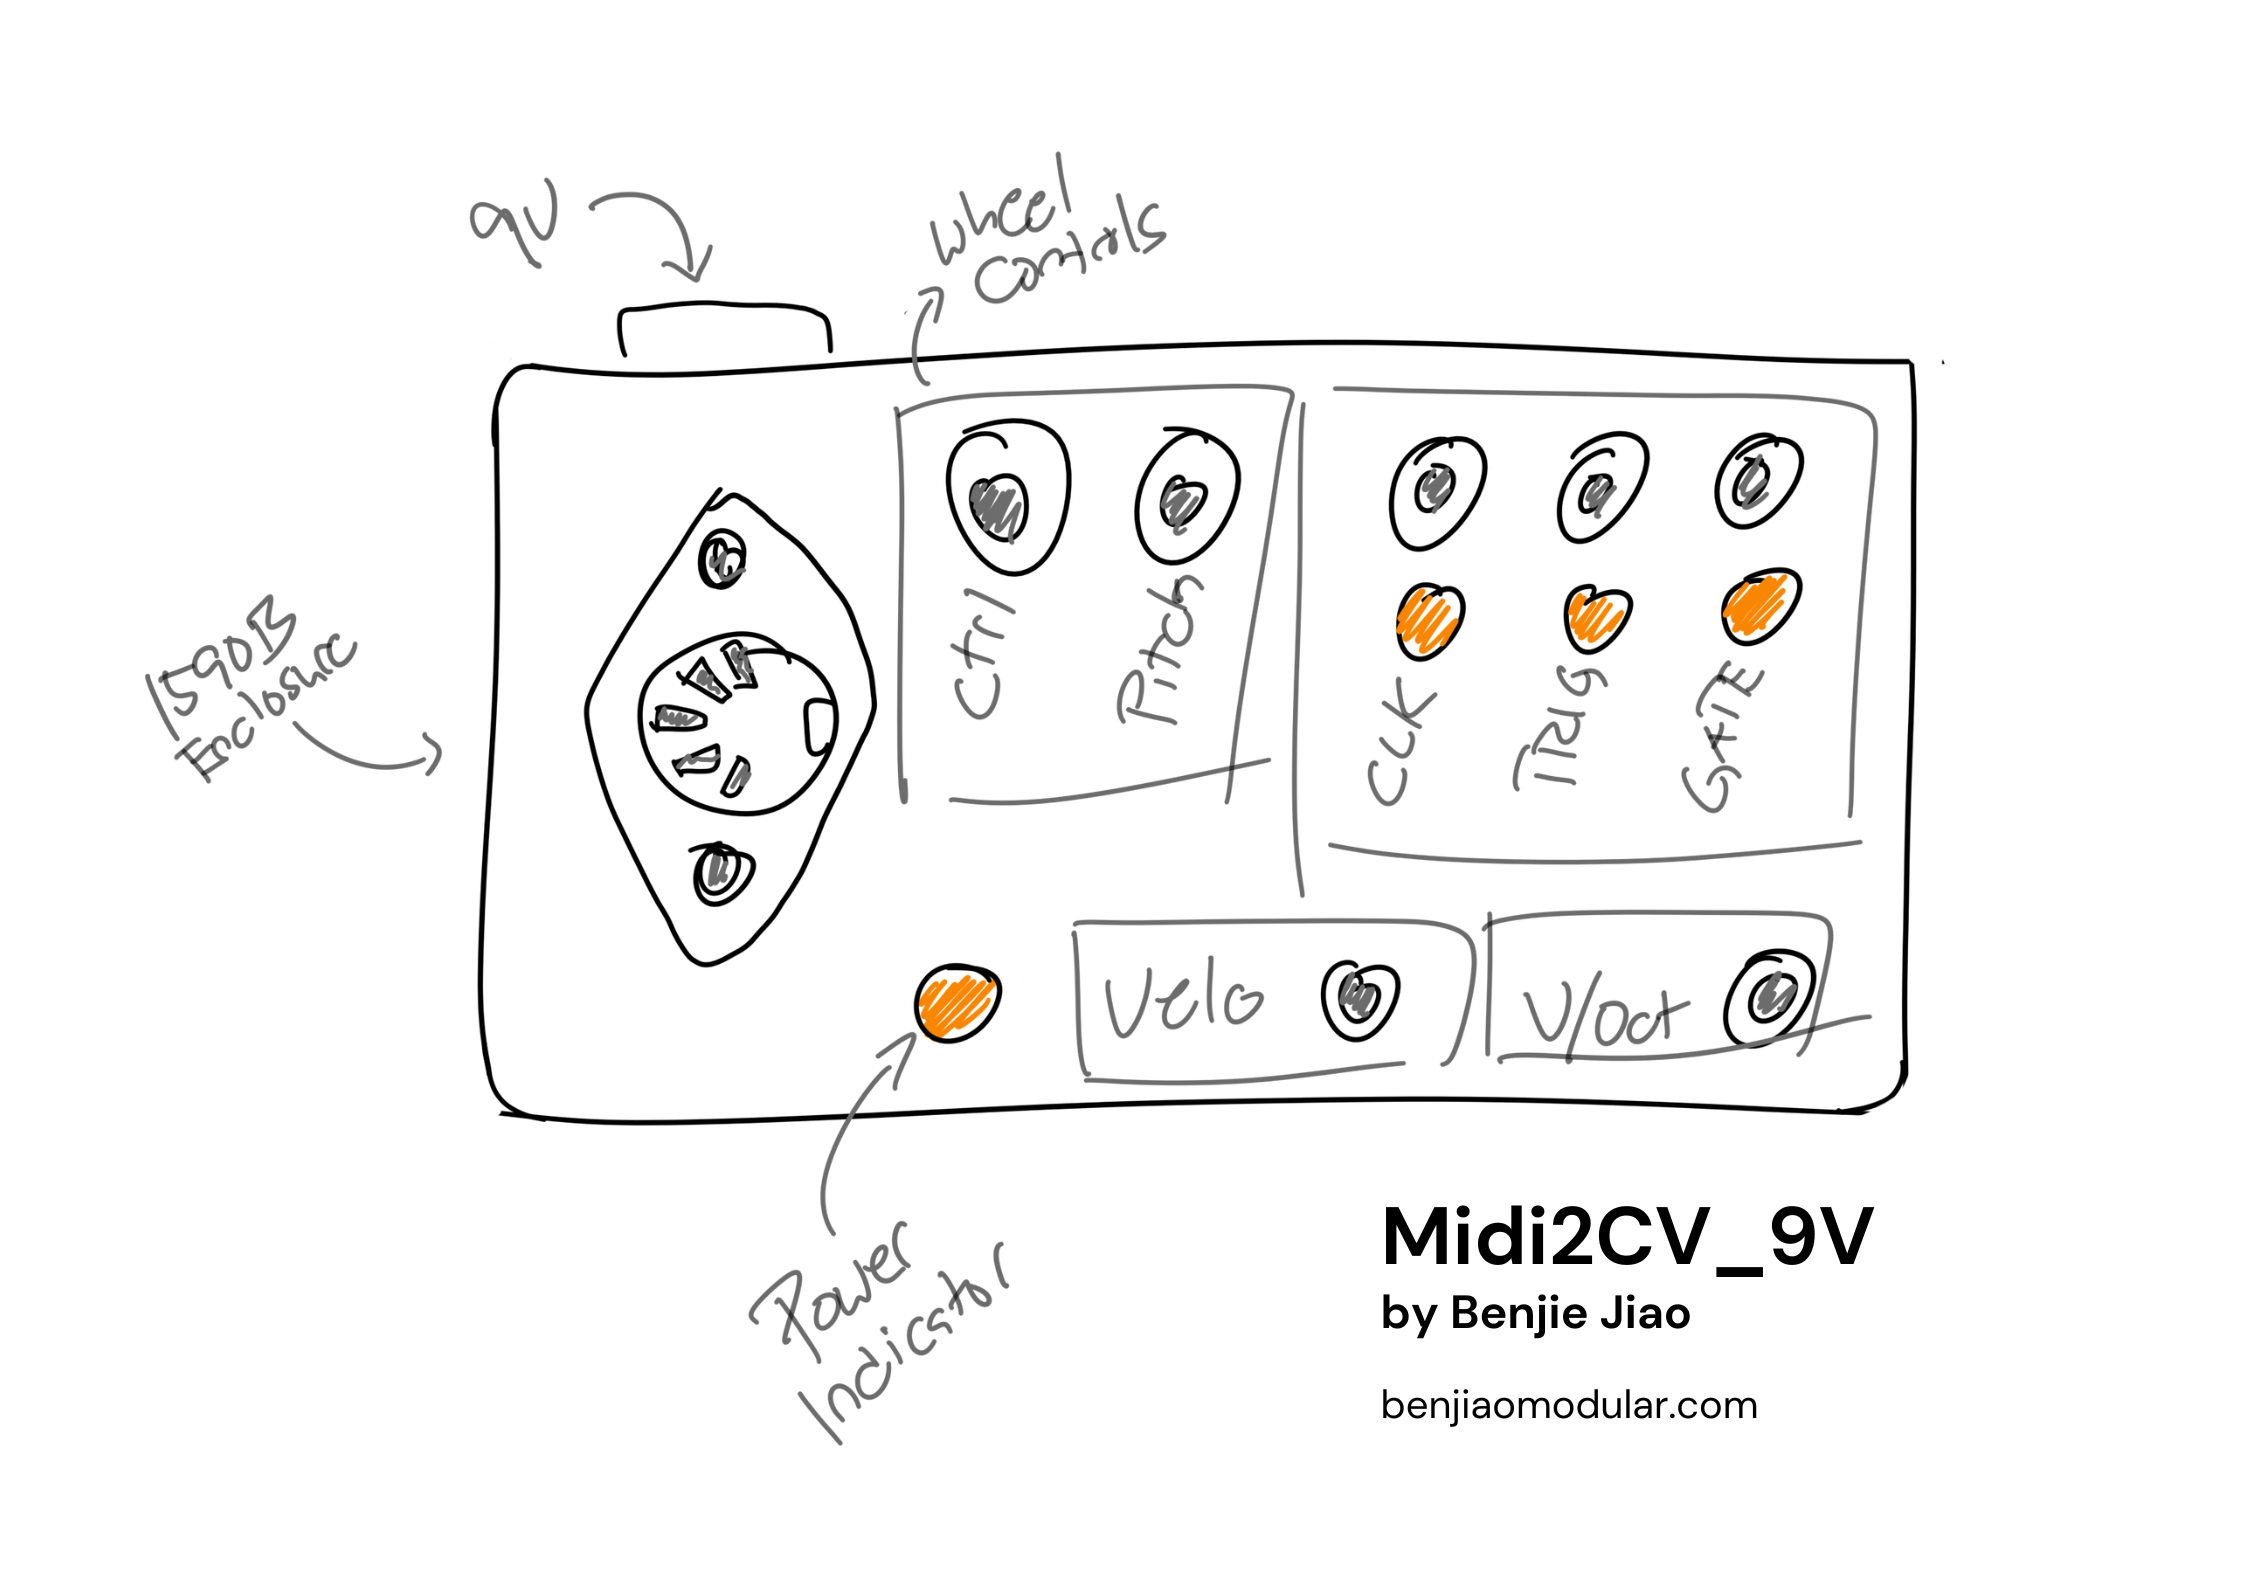 9V
wheel
controls
1590B
Enclosure
Ctrl
Pitch
CLK
TRIG
GATE
Velo
V/Oct
Power
Indicator
Midi2CV_9V
by Benjie Jiao
benjiaomodular.com